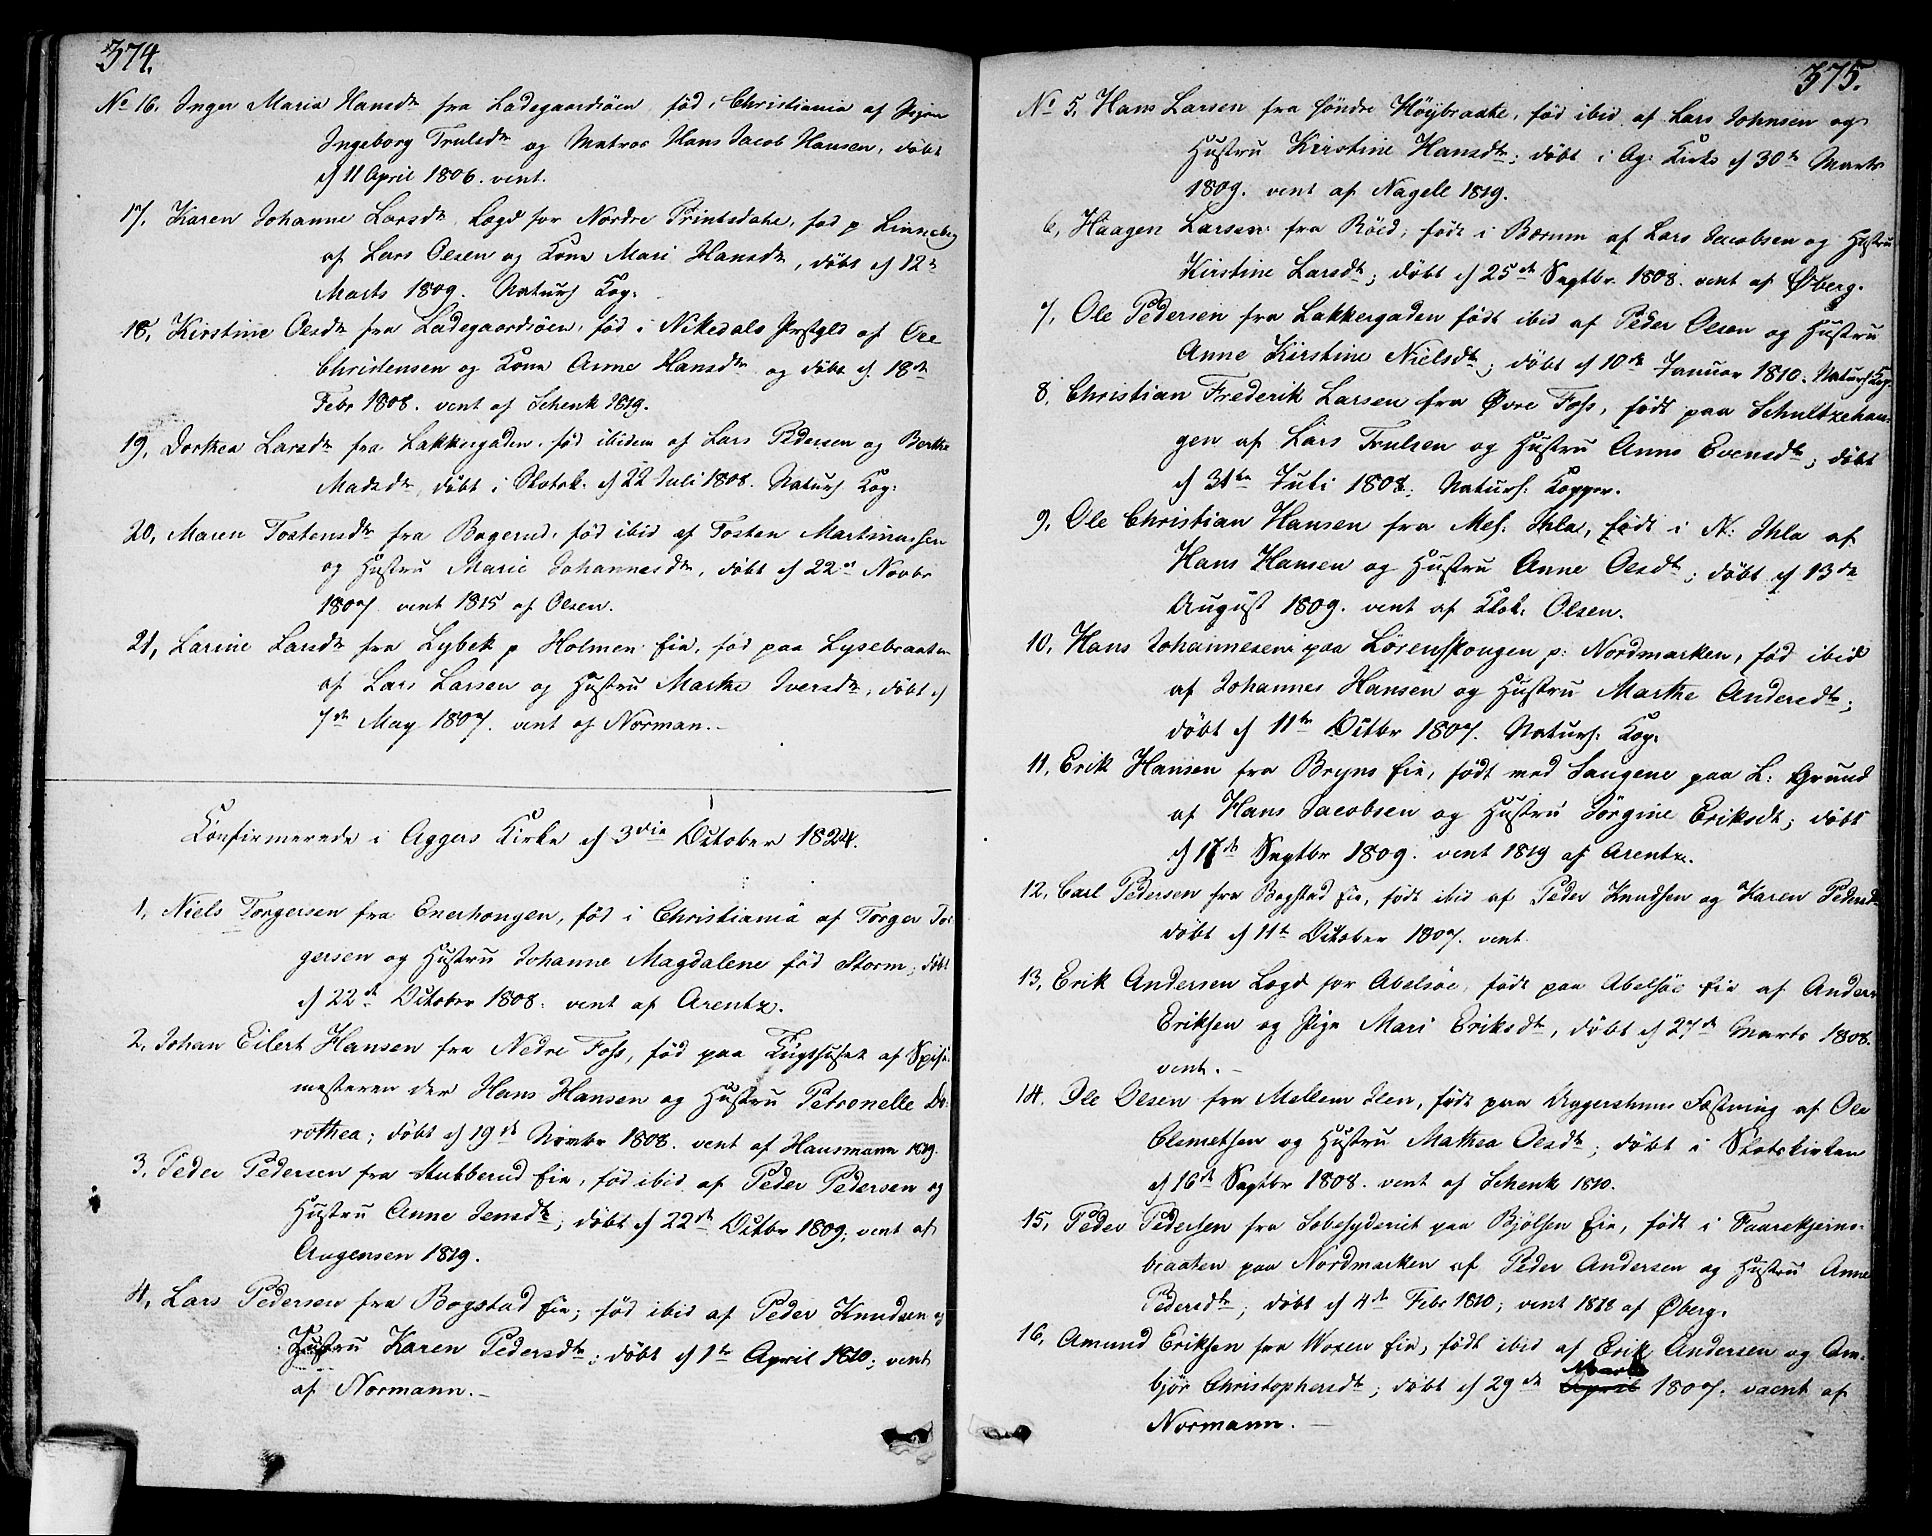 374.
No 16, Inger Maria Hansdtr fra Ladegaardsöen, föd i Christiania af Pigen
Ingeborg Trulsdtr og Matros Hans Jacob Hansen, döbt
d 11 April 1806. vent.
17, Karen Johanne Larsdtr Lægd for Nordre Printsdahl, föd p Linneberg
af Lars Olsen og Kone Mari Hansdtr, döbt d 12te
Marts 1809. Naturl Kop:
18, Kirstine Olsdtr fra Ladegaardsöen, föd i Nikedals Prstgld af Ole
Christensen og Kone Anne Hansdtr og döbt d. 18de
Febr 1808. vent af Schenk 1819.
19, Dorthea Larsdtr fra Lakkergaden, föd ibidem af Lars Pedersen og Berthe
Madsdtr, döbt i Slotsk. d 22 Juli 1808. Naturl. Kop:
20, Maren Tostensdtr fra Bogerud, föd ibid af Tosten Martinussen
og Hustru Marie Johannesdtr, döbt d 22de Novbr
1807 vent 1815 af Olsen.
21, Larine Larsdtr fra Lybek p Holmen Eie, föd paa Lysebraaten
af Lars Larsen og Hustru Marthe Iversdtr, döbt d
7de May 1807. vent af Norman.-
Confirmerede i Aggers Kirke d 3die October 1824.
1, Niels Torgersen fra Enerhougen, föd i Christiania af Torger Tor
gersen og Hustru Johanne Magdalene föd Storm, döbt
d 22de October 1808. vent af Arentz.
2, Johan Eilert Hansen fra Nedre Foss, föd paa Tugthuset af Spise
mesteren der Hans Hansen og Hustru Petronelle Do:
rothea; döbt d 19de Novbr 1808. vent af Hausmann 1819.
3. Peder Pedersen fra Stubberud Eie, föd ibid af Peder Pedersen og
Hustru Anne Jensdtr; döbt d 22de Octbr 1809; vent af
Augensen 1819.
4, Lars Pedersen fra Bogstad Eie; föd ibid af Peder Knudsen og
Hustru Karen Pedersdtr; döbt d 1te April 1810; vent
af Normann.-
375.
No 5, Hans Larsen fra söndre Höybraate, föd ibid af Lars Johnsen og
Hustru Kirstine Hansdtr; döbt i Ag: Kirke d 30te Marts
1809. vent af Nagell 1819.
6, Haagen Larsen fra Röed, födt i Bærum af Lars Jacobsen og Hustru
Kirstine Larsdtr; döbt d 25de Septbr 1808. vent af Øberg.
7, Ole Pedersen fra Lakkergaden födt ibid af Peder Olsen og Hustru
Anne Kirstine Nielsdtr; döbt d 10de Januar 1810. Naturl. Kop.
8, Christian Frederik Larsen fra Øvre Foss, födt paa Schultzehau-
gen af Lars Trulsen og Hustru Anne Evensdtr; döbt
d 31te Juli 1808; Naturl: Kopper.
9, Ole Christian Hansen fra Mel: Ihla, födt i N: Ihla af
Hans Hansen og Hustru Anne Olsdtr; döbt d 13de
August 1809. vent af Klok: Olsen.
10, Hans Johannesen paa Lörenskougen p: Nordmarken, föd ibid
af Johannes Hansen og Hustru Marthe Andersdtr;
döbt d 11te Octbr 1807. Naturl: Kop:
11, Erik Hansen fra Bryns Eie, födt ved Saugene paa L: Grund
af Hans Jacobsen og Hustru Jörgine Eriksdtr; döbt
d 17de Septbr 1809. vent 1819 af Arentz.
12, Carl Pedersen fra Bogstad Eie, födt ibid af Peder Knudsen og Karen Pedersdtr
döbt d 11te October 1807. vent.
13, Erik Andersen Lægd for Abelsöe, födt paa Abelsöe Eie af Anders
Eriksen og Pige Mari Eriksdtr, döbt d 27de Marts 1808.
vent.-
14. Ole Olsen fra Mellem Ilen, födt paa Aggershuus Fæstning af Ole
Clemetsen og Hustru Mathea Olsdtr; döbt i Slotskirken
d 16de Septbr 1808. vent af Schenk 1810.
15, Peder Pedersen fra Sæbesyderiet paa Bjölsen Eie, födt i Faarekjerns-
braaten paa Nordmarken af Peder Andersen og Hustru Anne
Pedersdtr; döbt d 4de Febr 1810; vent 1818 af Øberg.
16, Amund Eriksen fra Woxen Eie, födt ibid af Erik Andersen og Am-
björ Christophersdtr; döbt d 29de April Marts 1807. vacnt af
Normann.-